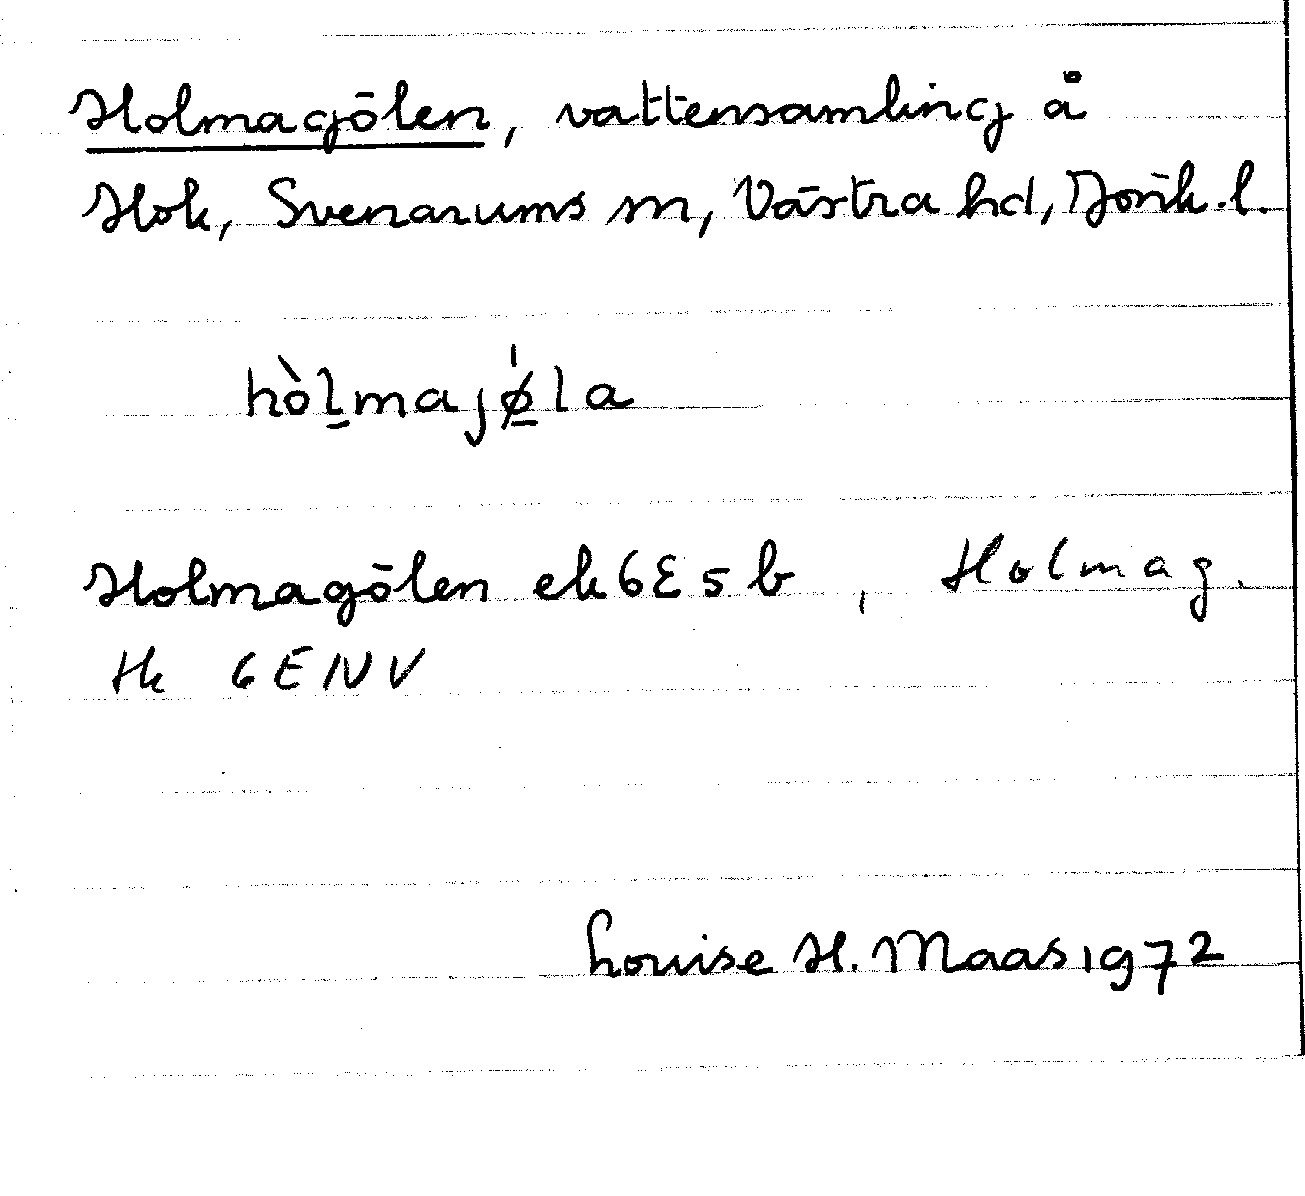 Holmagölen, vattensamling å
Hok, Svenarums sn, Västra hd, Jönk.l.
hòl̠majǿ̠la
Holmagölen ek 6E5b, Holmag.
Hk 6E NV
Louise H. Maas 1972